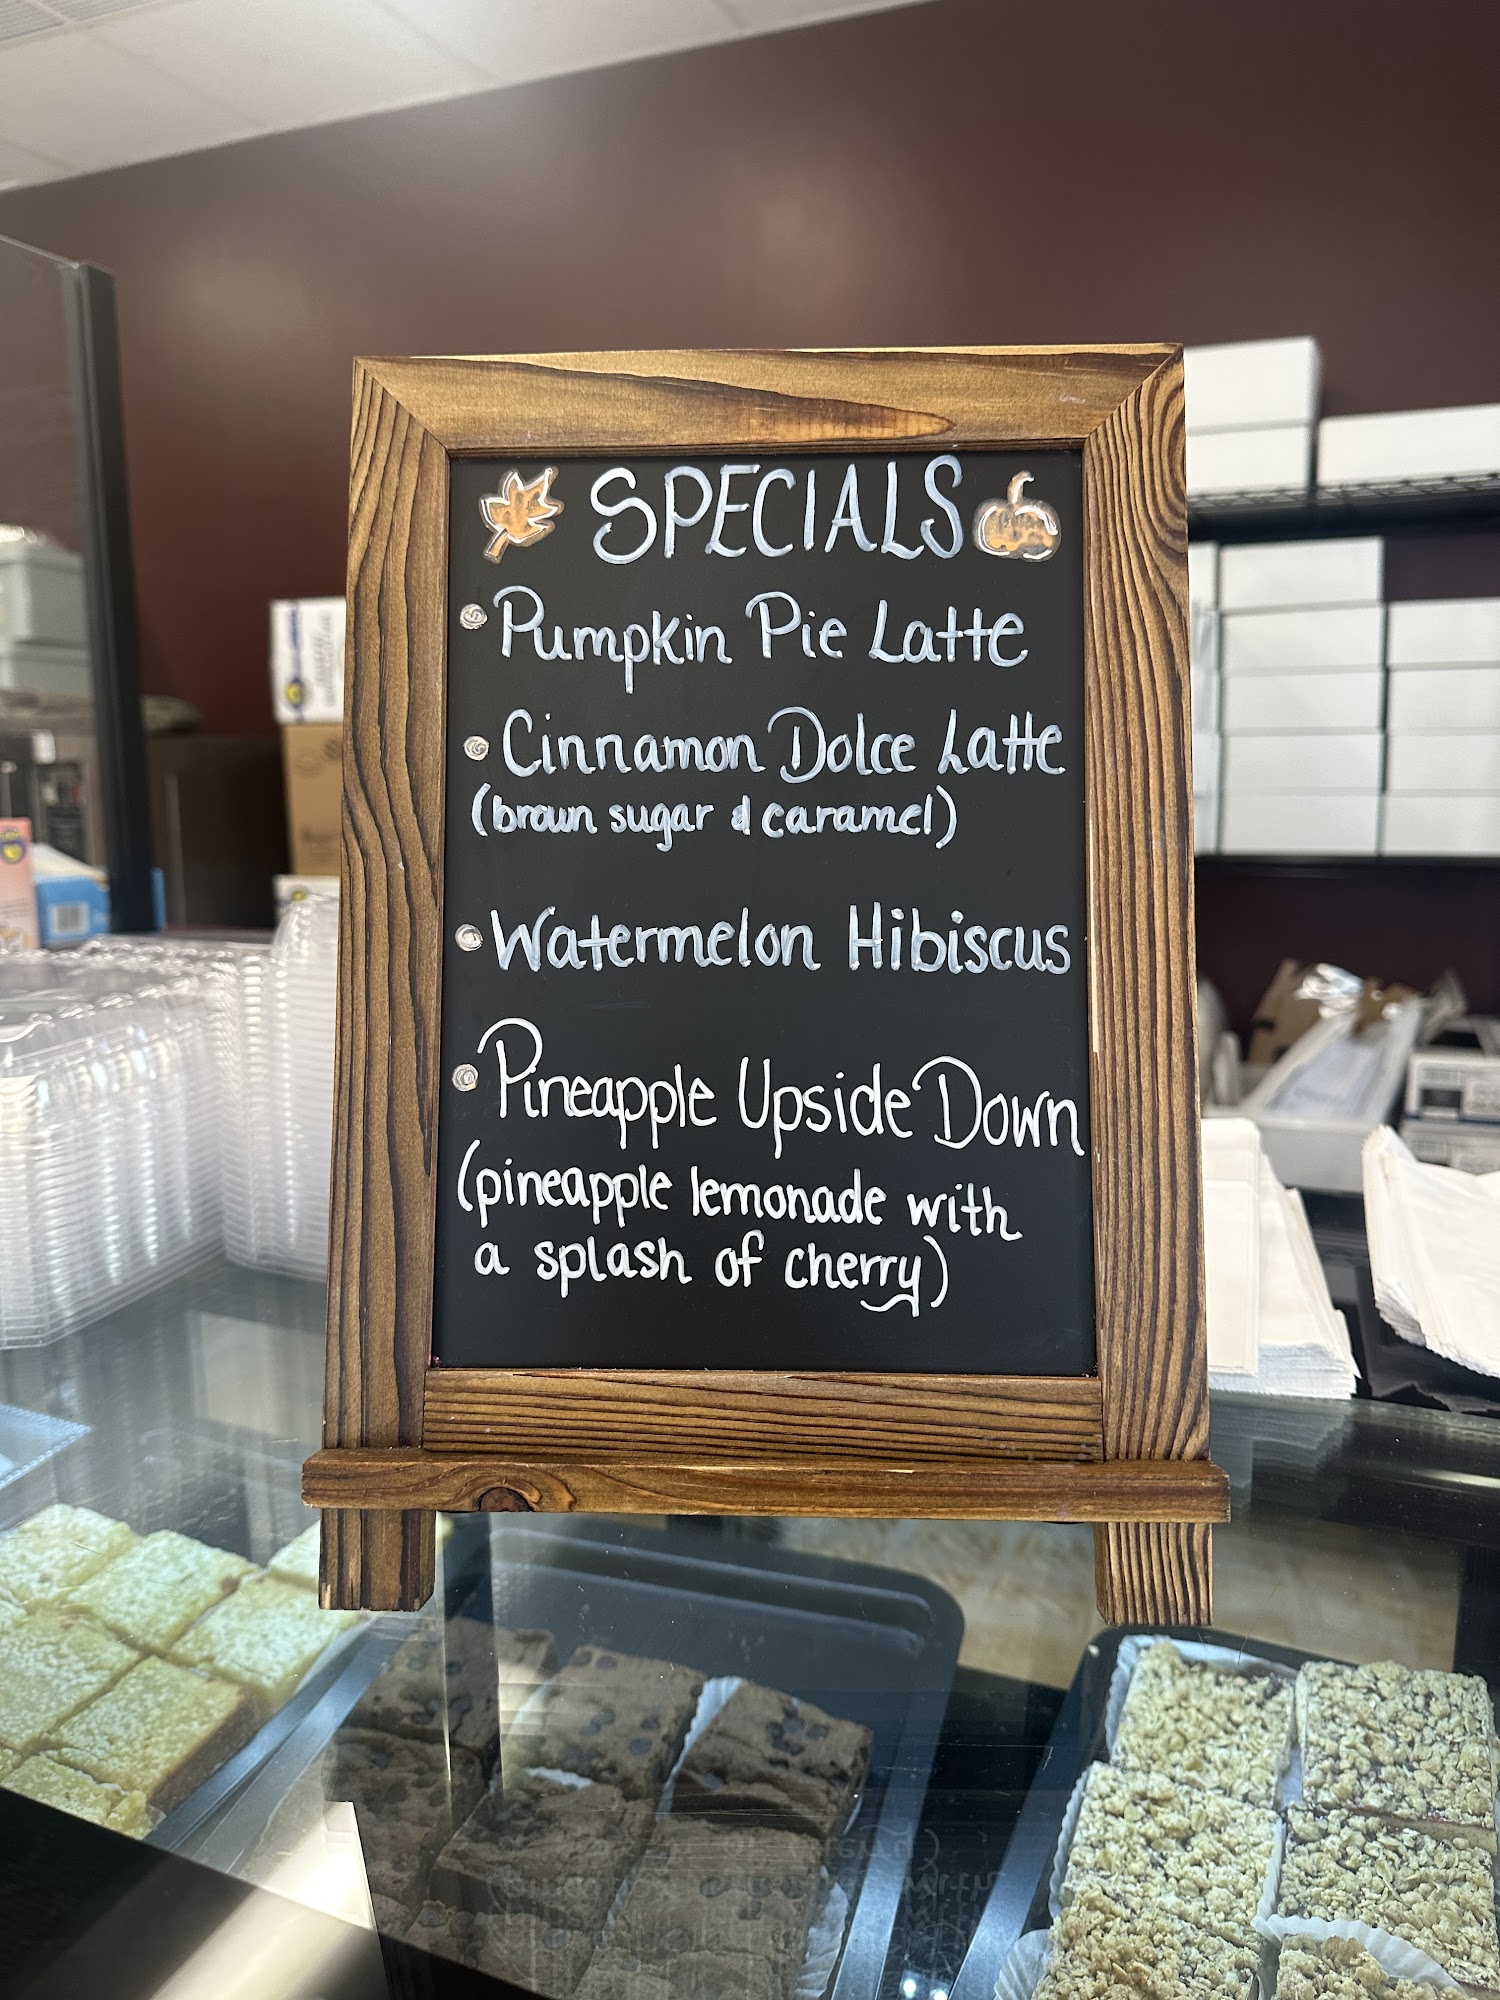 SPECIALS
Pumpkin Pie Latte
Cinnamon Dolce Latte
(brown sugar & caramel)
Watermelon Hibiscus
Pineapple Upside Down
(pineapple lemonade with
a splash of cherry)